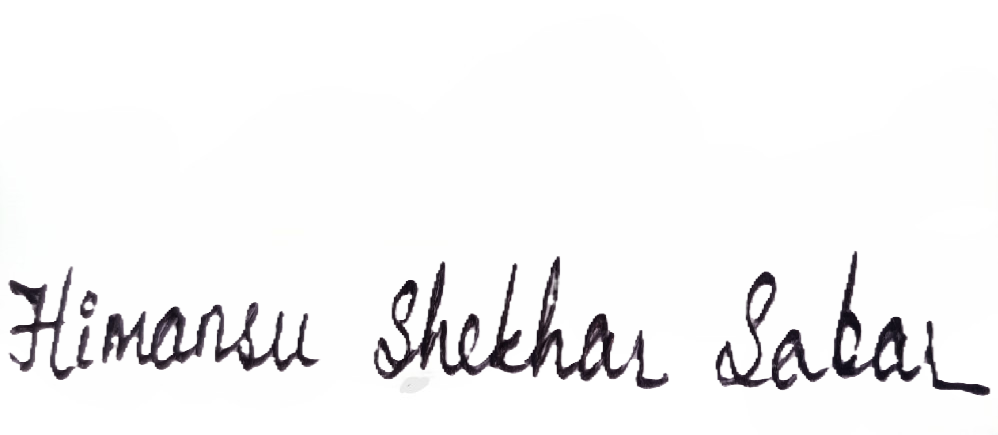 Himansu Shekhar Sabar